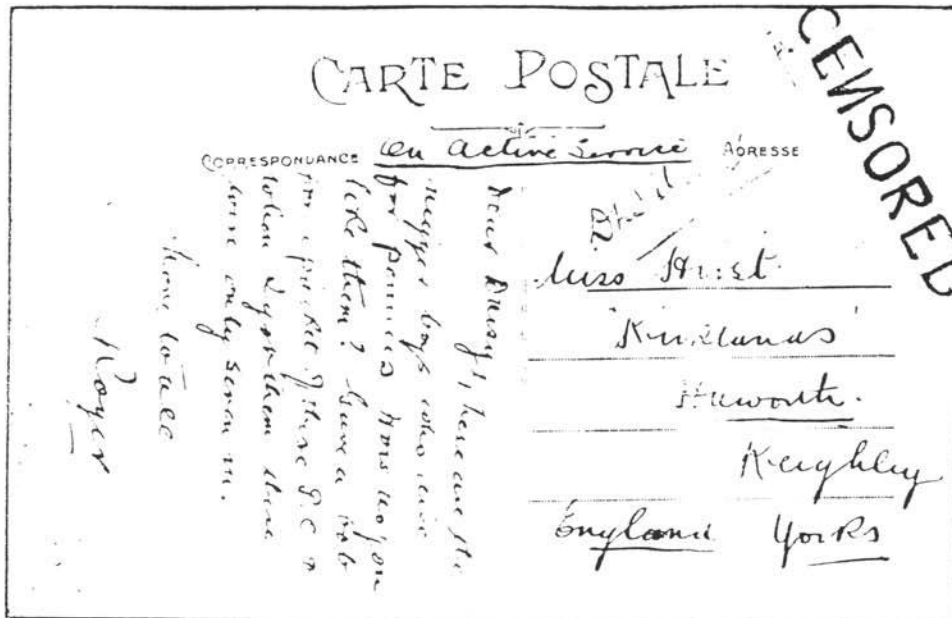 CARTE POSTALE
CENSORED
CORRESPONDANCE On Active Service ADRESSE
Dear Daisy, here are the
nigger boys who dive
for pennies How do you
like them? Gave a bob
for a packet of these P.C's
when I got them there
were only seven in.
love to all
Roger
Miss Hirst
Haworth.
Keighley
England Yorks